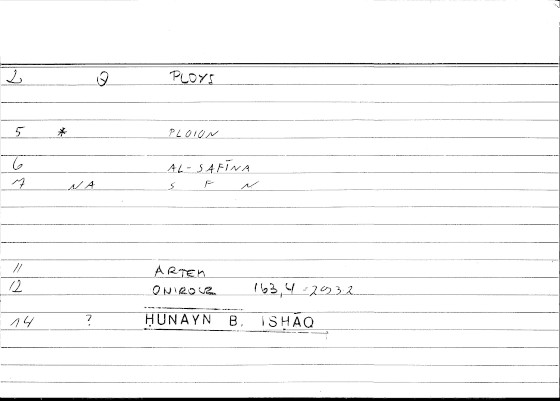 2 Q PLOYS
5 * PLOION
6 AL-SAFĪNA
7 NA S F N
11 ARTEM
12 ONIROCR 163,4
14 ? ḤUNAYN B. ISḤĀQ